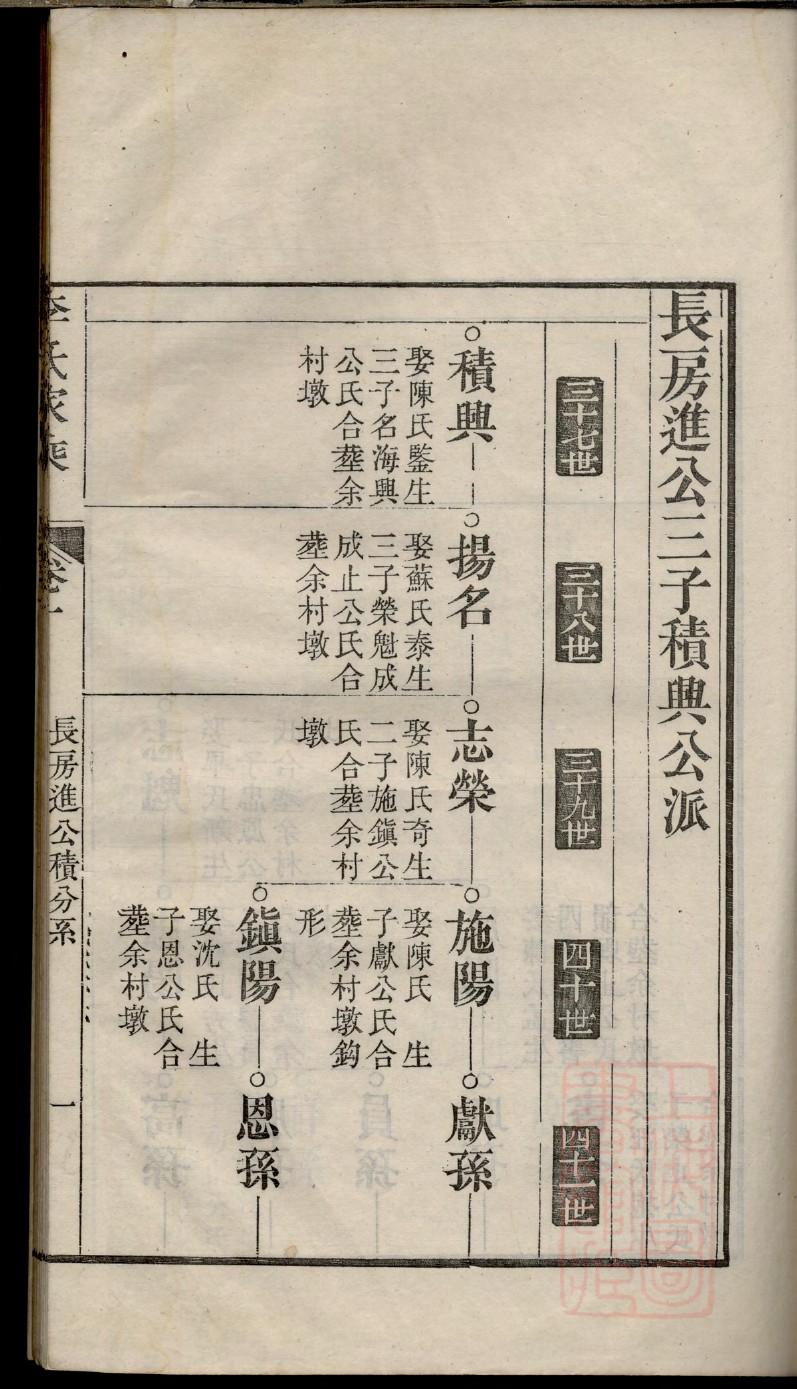 長房進公三子積興公派
三十七世
三十八世
三十九世
四十世
四十一世
積興
娶陳氏鑒生
三子名海興
公氏合塟余
村墩
揚名
娶蘇氏泰生
三子榮魁成
成止公氏合
塟余村墩
志榮
娶陳氏奇生
二子施鎭公
氏合塟余村
墩
施陽
娶陳氏 生
子獻公氏合
塟余村墩鈎
形
獻孫
鎭陽
娶沈氏 生
子恩公氏合
塟余村墩
恩孫
李氏家乘
卷一
長房進公積分系
一